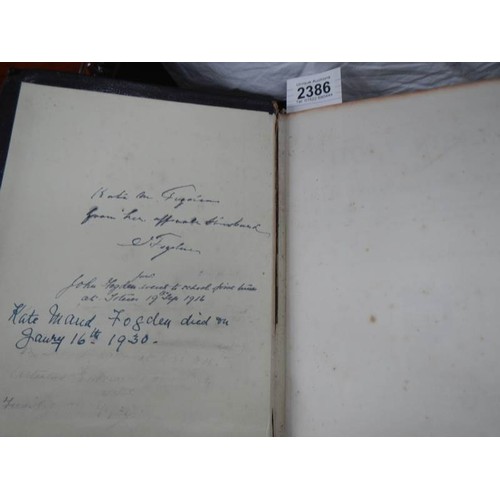 2386
Kate M. Fogden
from her affectionate Husband
J Fogden
John Fogden went to school first time
at 19 Sep 1916
Kate Maud Fogden died on
Janry 16th 1930.